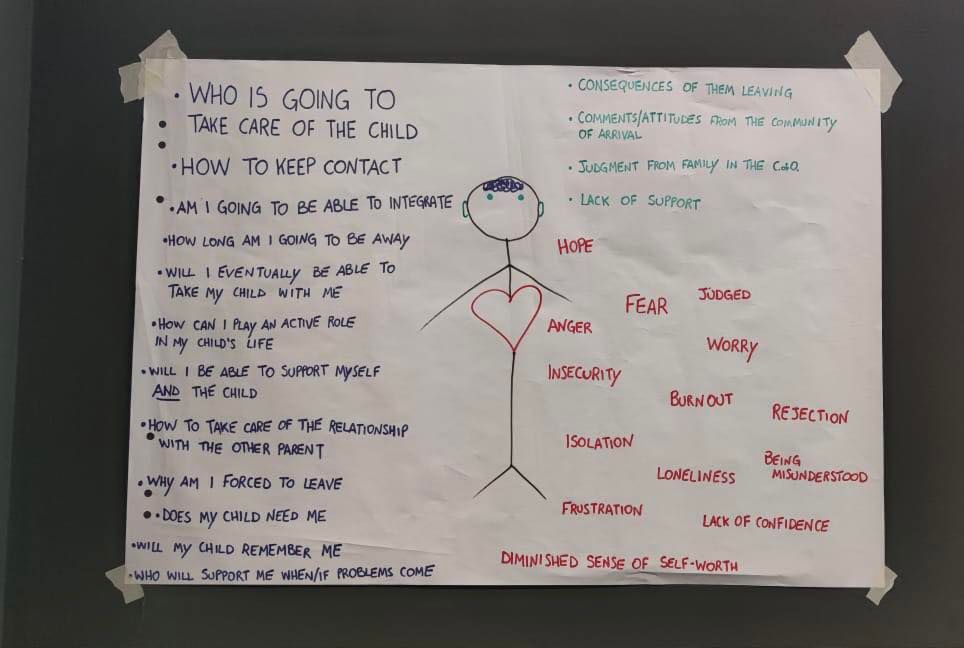 • WHO IS GOING TO
TAKE CARE OF THE CHILD
• HOW TO KEEP CONTACT
• AM I GOING TO BE ABLE TO INTEGRATE
• HOW LONG AM I GOING TO BE AWAY
• WILL I EVENTUALLY BE ABLE TO
TAKE MY CHILD WITH ME
• HOW CAN I PLAY AN ACTIVE ROLE
IN MY CHILD'S LIFE
• WILL I BE ABLE TO SUPPORT MYSELF
AND THE CHILD
• HOW TO TAKE CARE OF THE RELATIONSHIP
WITH THE OTHER PARENT
• WHY AM I FORCED TO LEAVE
• DOES MY CHILD NEED ME
• WILL MY CHILD REMEMBER ME
• WHO WILL SUPPORT ME WHEN/IF PROBLEMS COME
• CONSEQUENCES OF THEM LEAVING
• COMMENTS/ATTITUDES FROM THE COMMUNITY
OF ARRIVAL
• JUDGMENT FROM FAMILY IN THE CoO.
• LACK OF SUPPORT
HOPE
FEAR
JUDGED
ANGER
WORRY
INSECURITY
BURNOUT
REJECTION
ISOLATION
LONELINESS
BEING
MISUNDERSTOOD
FRUSTRATION
LACK OF CONFIDENCE
DIMINISHED SENSE OF SELF-WORTH